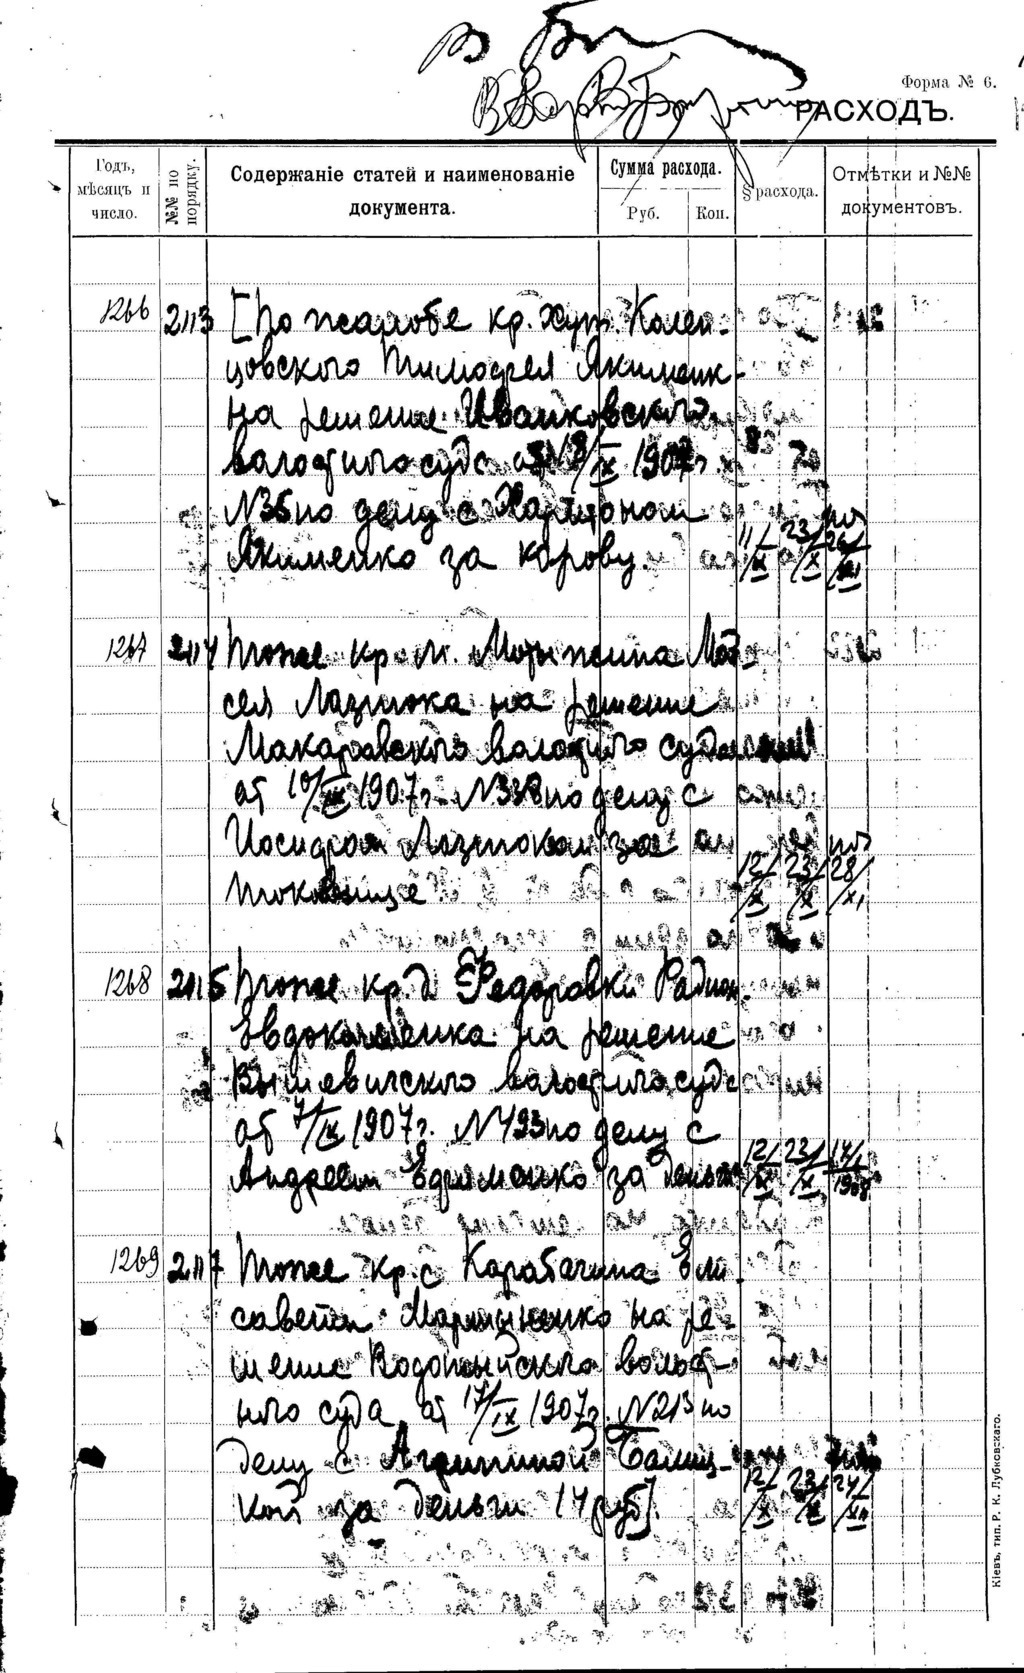 Форма № 6.
РАСХОДЪ.
Годъ, мѣсяцъ и число.
№№ по порядку.
Содержаніе статей и наименованіе документа.
Сумма расхода.
Руб.
Коп.
§ расхода.
Отмѣтки и №№ документовъ.
1266 2113 [По жалобе кр. Хут. Колен-
цовского Тимофея Якименк-
на решение Иванковского
волостного суда от 18/IX 1907 г.
№ 36 по делу с Харитоном
Якименко за корову. 11/X 23/X 26/XI
1267 2114 Тоже кр. м. Мотыжина Мои-
сея Лазтока на решение
Макаровского волостного суда
от 10/IX 1907 г. № 338 по делу с
Иосифом Лазтоком за
токовище 12/X 23/X 28/XI
1268 2115 Тоже кр. д. Федоровки Радион-
Евдокименка на решение
Вышевичского волостного суда
от 7/IX 1907 г. № 193 по делу с
Андреем Ефименко за деньги 12/X 23/X 14/I 1908
1269 2117 Тоже кр. с Карабачина Ели-
саветы Мартыненко на ре-
шение Водотыйского волост-
ного суда от 17/IX 1907 г. № 213 по
делу с Агрипиной Балиц-
кой за деньги 14 руб]. 12/X 23/X 24/XII
Кіевъ, тип. Р. К. Лубковскаго.